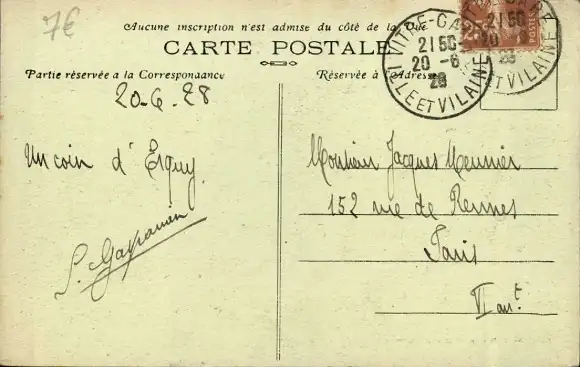 7€
Aucune inscription n'est admise du côté de la Vue
CARTE POSTALE
Partie réservée a la Correspondance
Réservée à l'Adresse
VITRE-GARE
21 50
20 - 6
28
ILLE ET VILAINE
GARE
21 50
20 - 6
28
ET VILAINE
20-6.28
Un coin d'Erquy.
Monsieur Jacques Meunier
152 rue de Rennes
Paris
VI arr.t